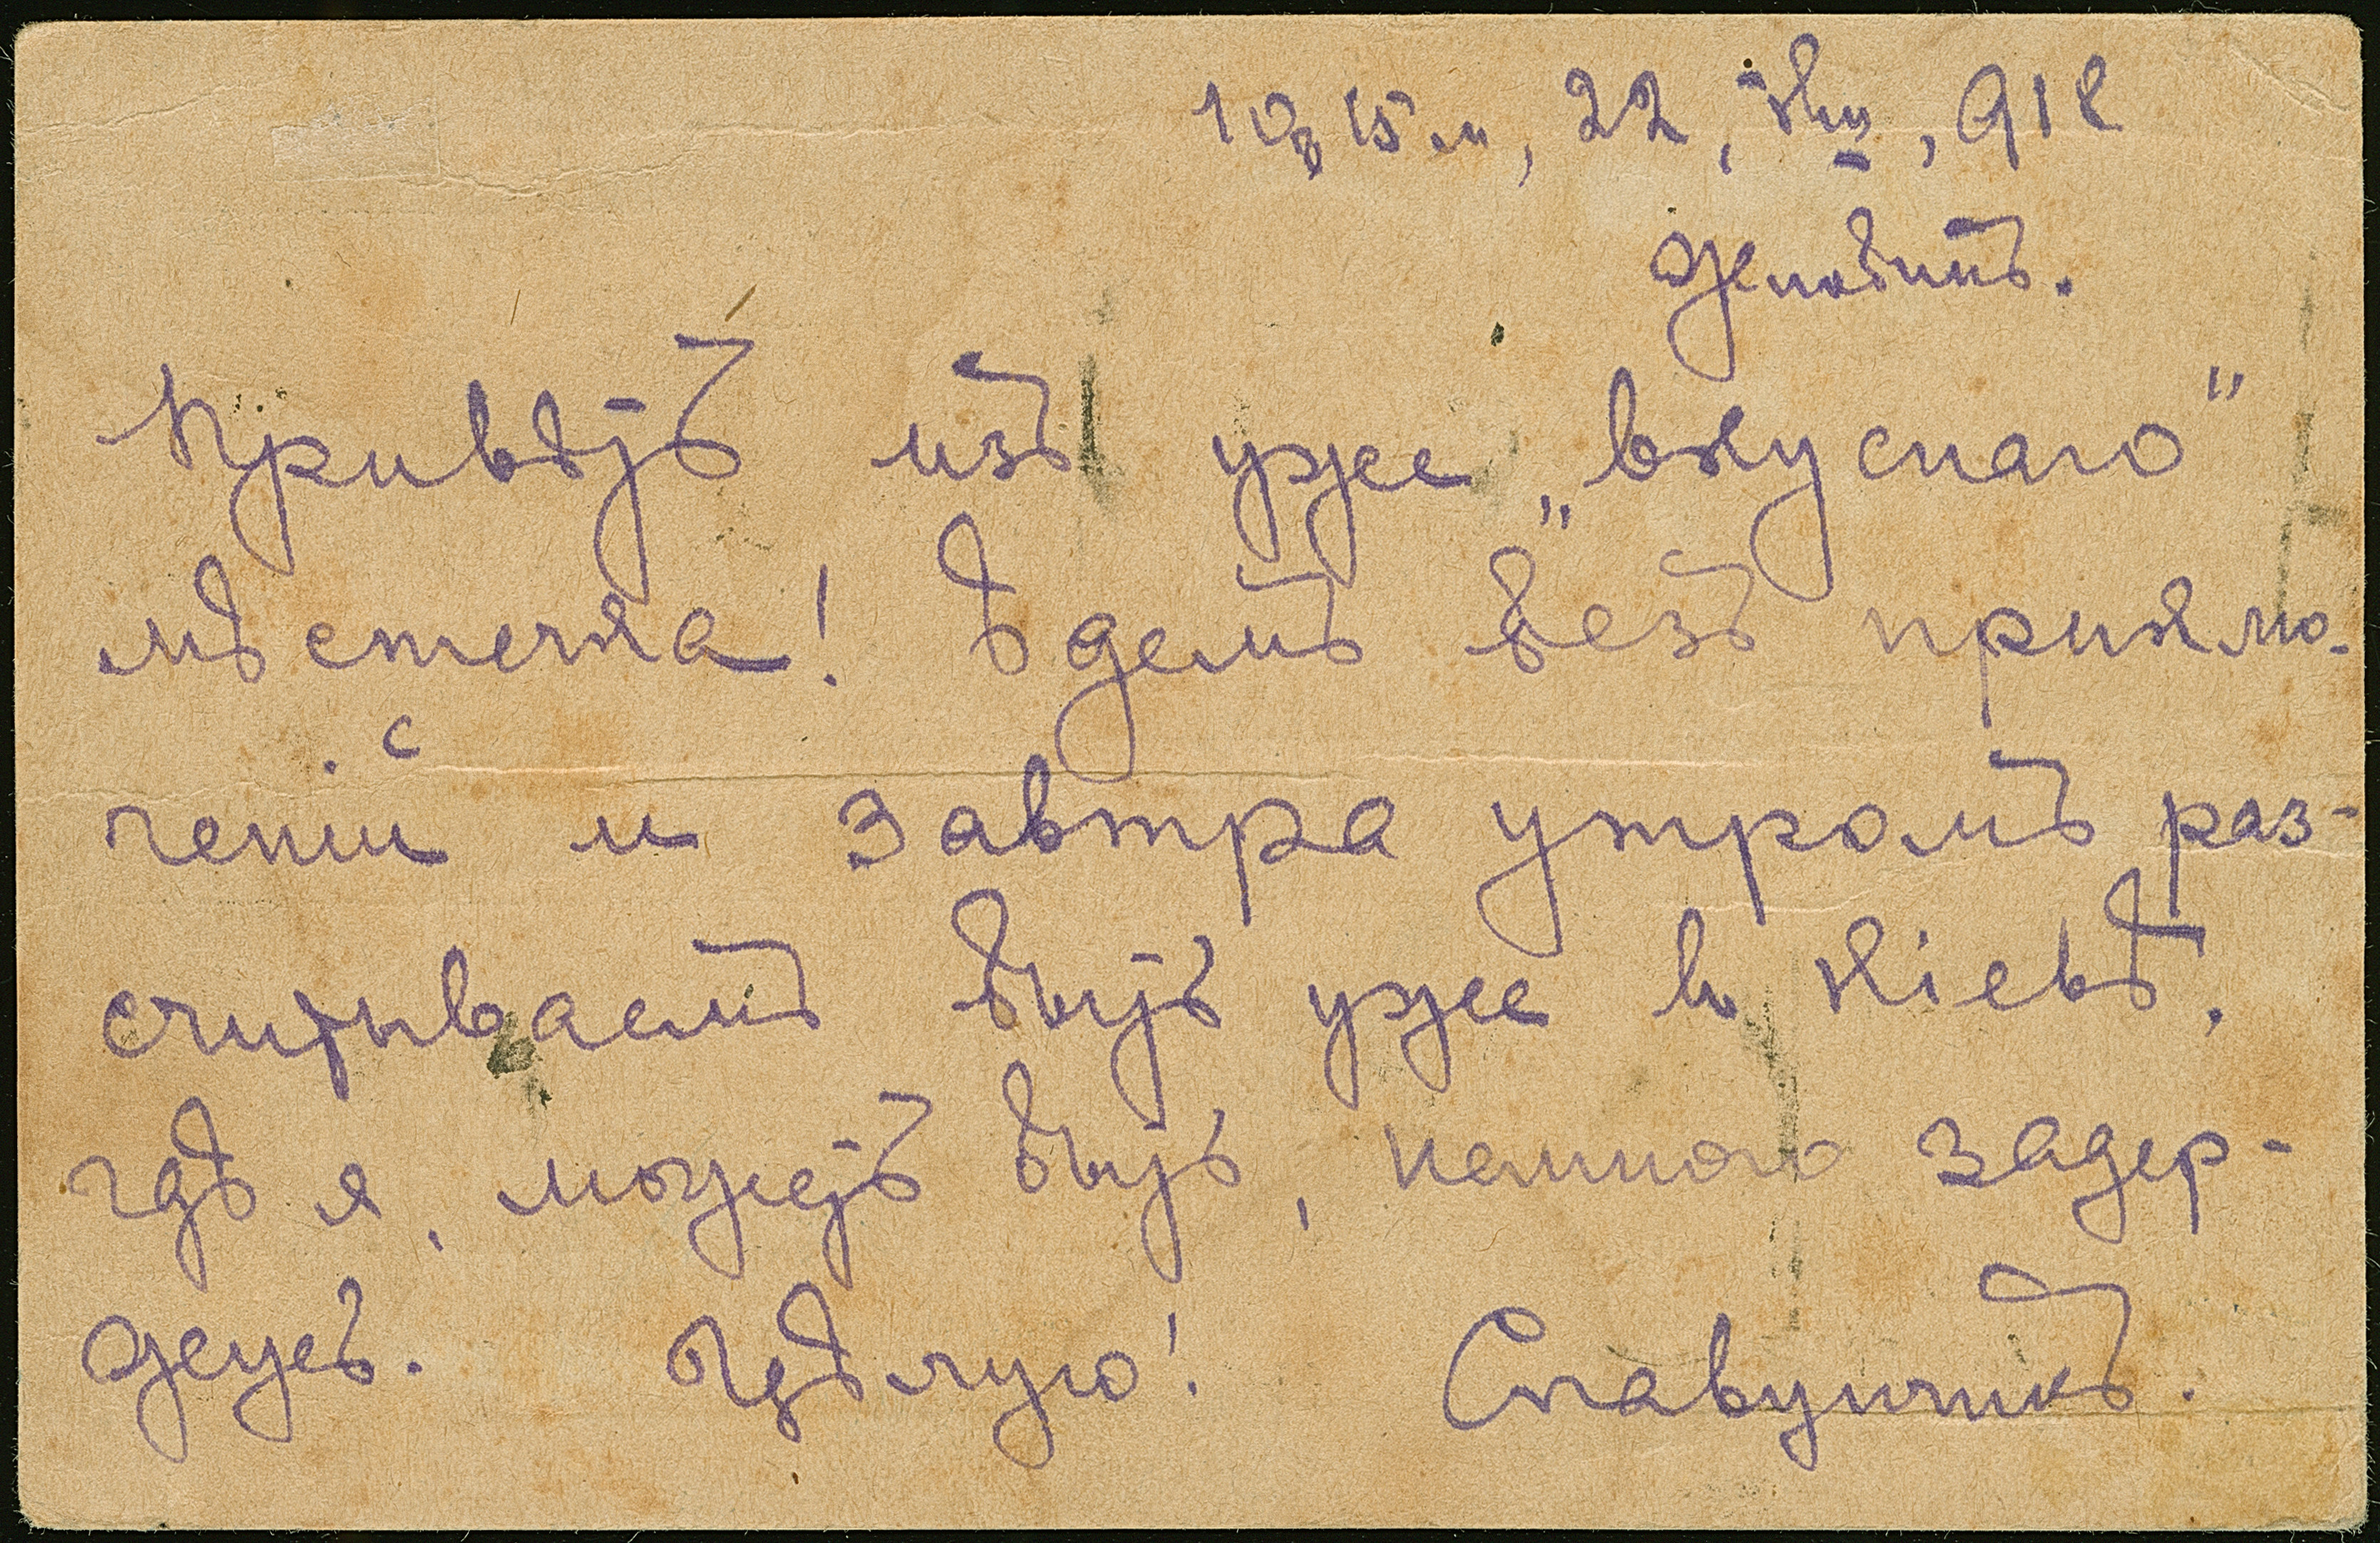 10 ч 15 м, 22, 918
Жлобинъ.
Привѣтъ изъ уже „вкуснаго"
мѣстечка! Ѣдемъ безъ приклю-
ченій и завтра утромъ раз-
считываемъ быть уже въ Кіевѣ,
гдѣ я, можетъ быть, немного задер-
жусь. Цѣлую! Славунчикъ.